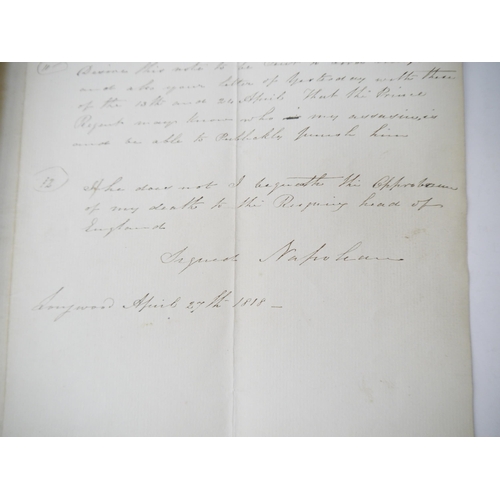 Desires this note to be
and also your letter of Yesterday with those
of the 13th and 24 April That the Prince
Regent may know who is my assassin is
and be able to Publickly punish him
13
If he does not I bequeathe the Opprobrium
of my death to the Reigning head of
England
Signed Napolean
Longwood April 27th 1818 —